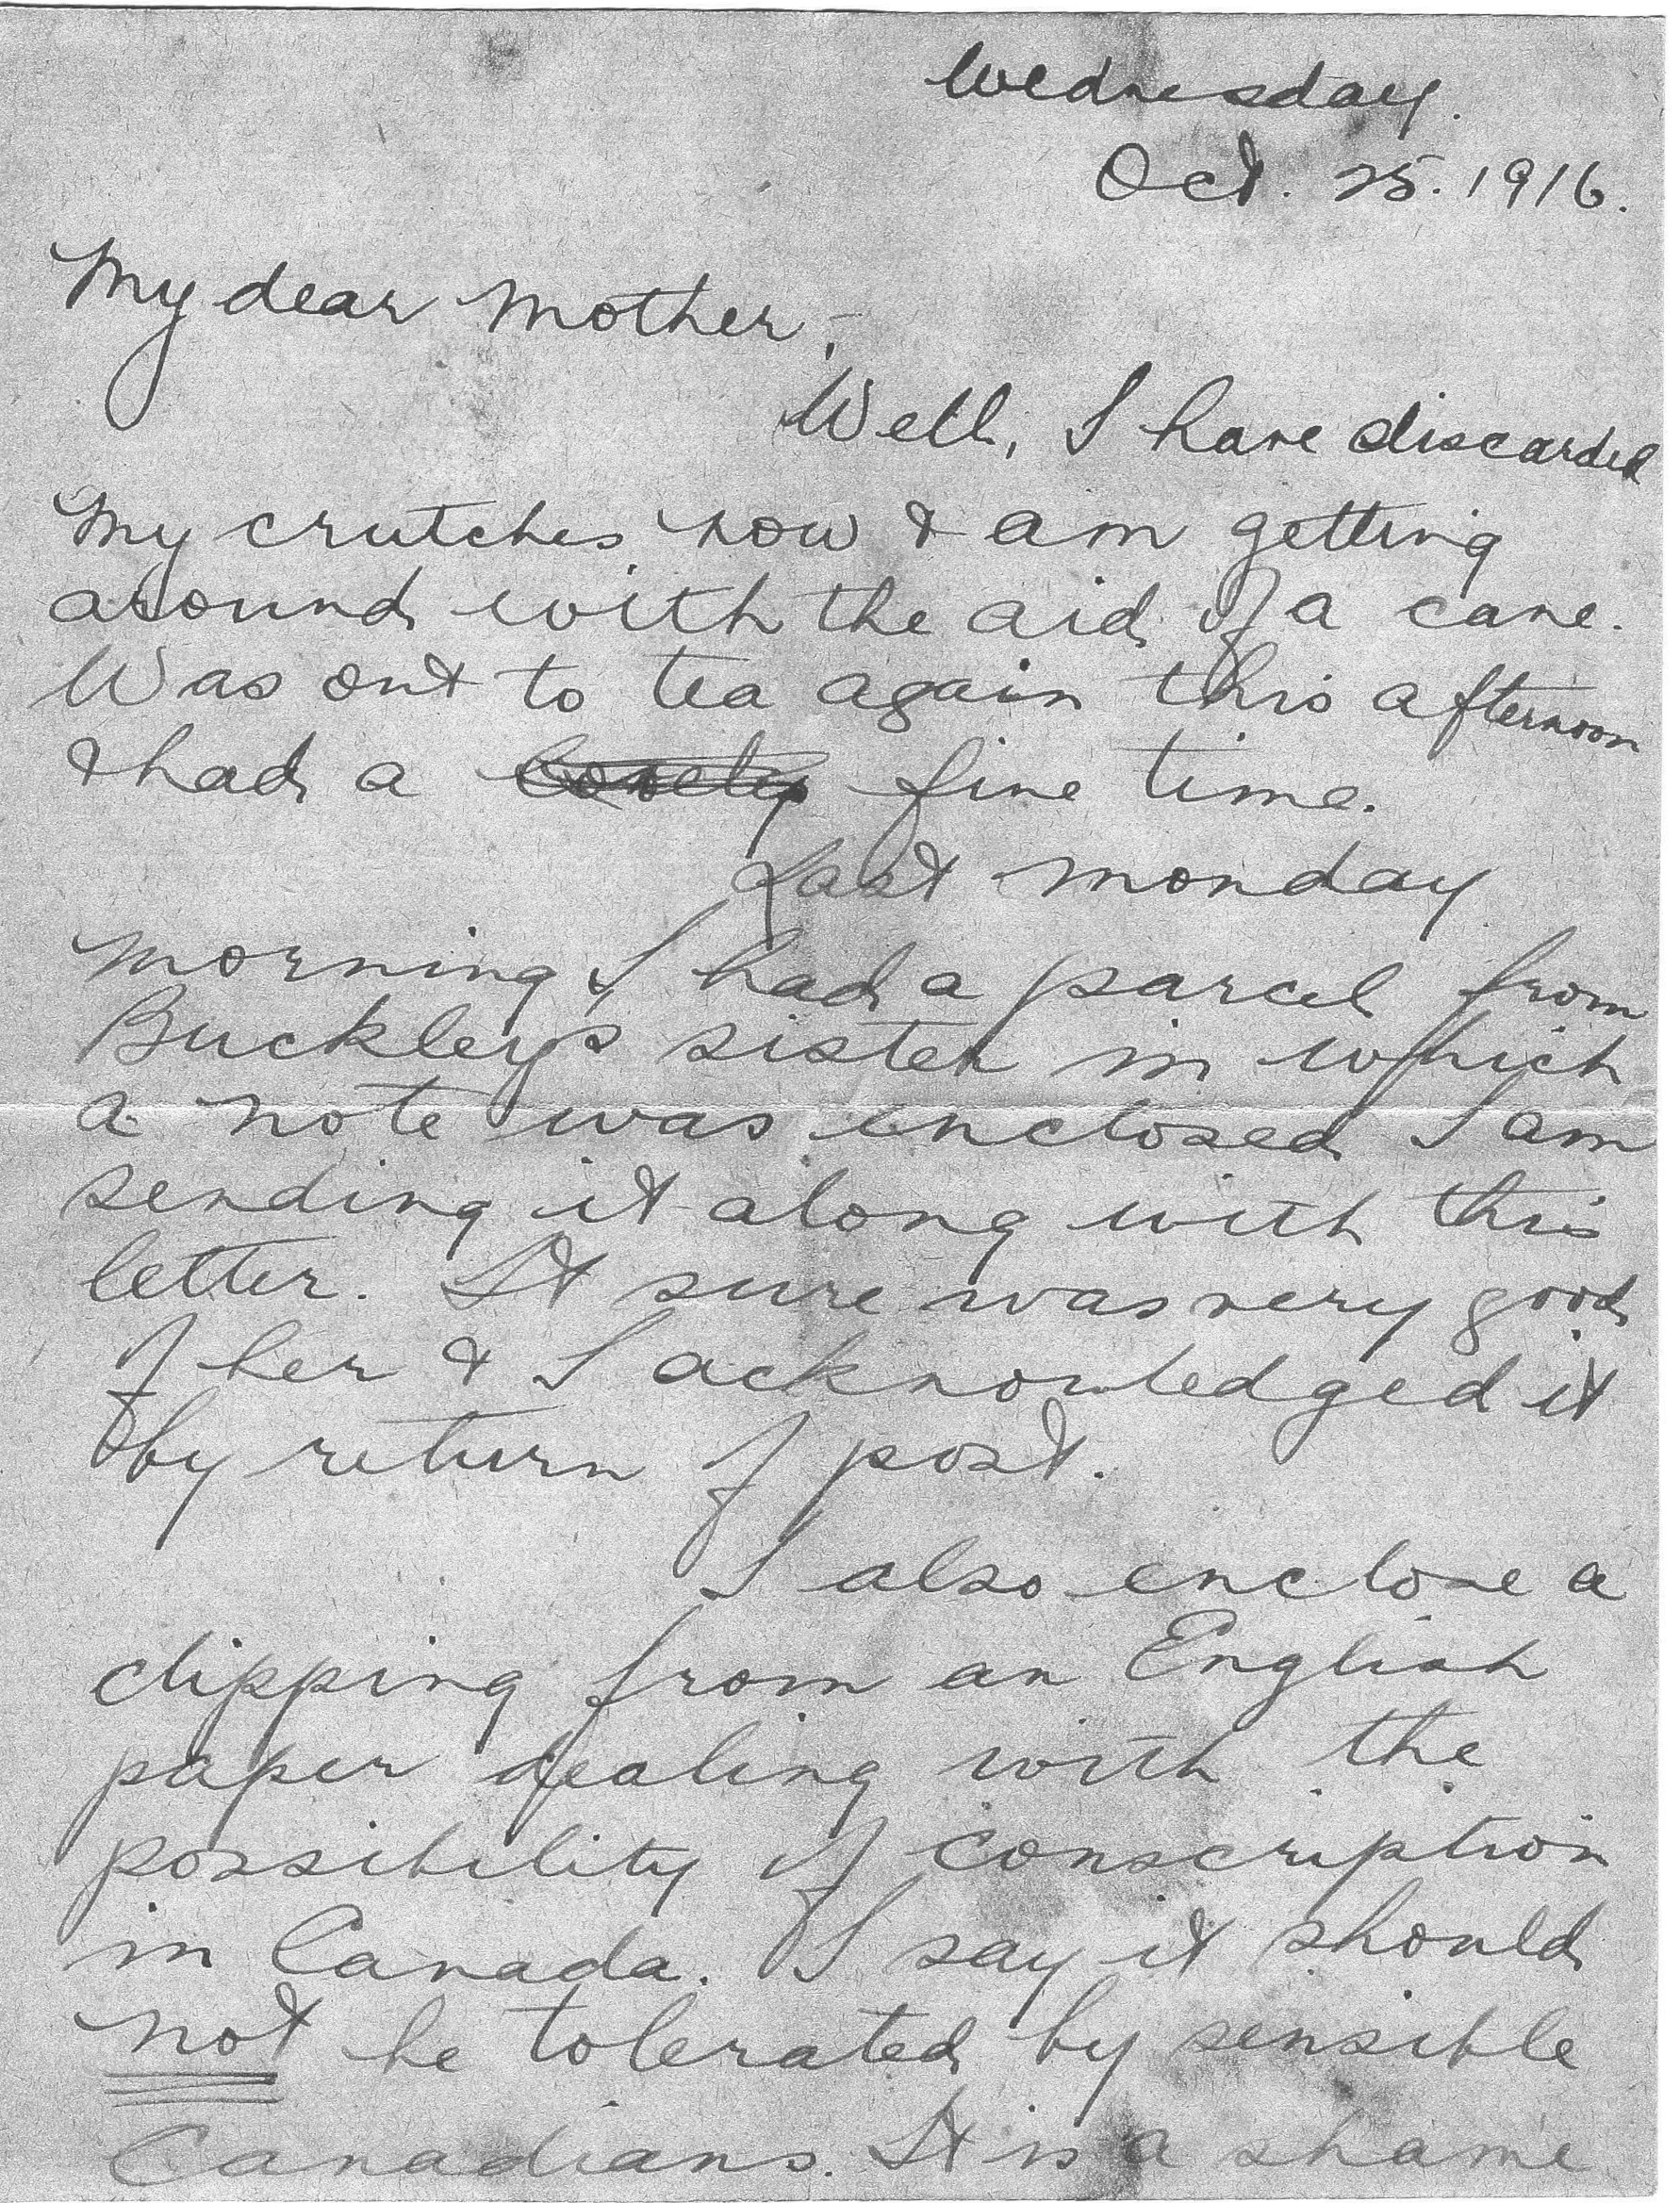 Wednesday.
Oct. 25. 1916.
My dear Mother,-
Well, I have discarded
my crutches now & am getting
around with the aid of a cane.
Was out to tea again this afternoon
& had a lovely fine time.
Last Monday
morning I had a parcel from
Buckley's sister in which
a note was enclosed I am
sending it along with this
letter. It sure was very good
of her & I acknowledged it
by return of post.
I also enclose a
clipping from an English
paper dealing with the
possibility of conscription
in Canada. I say it should
not be tolerated by sensible
Canadians. It is a shame